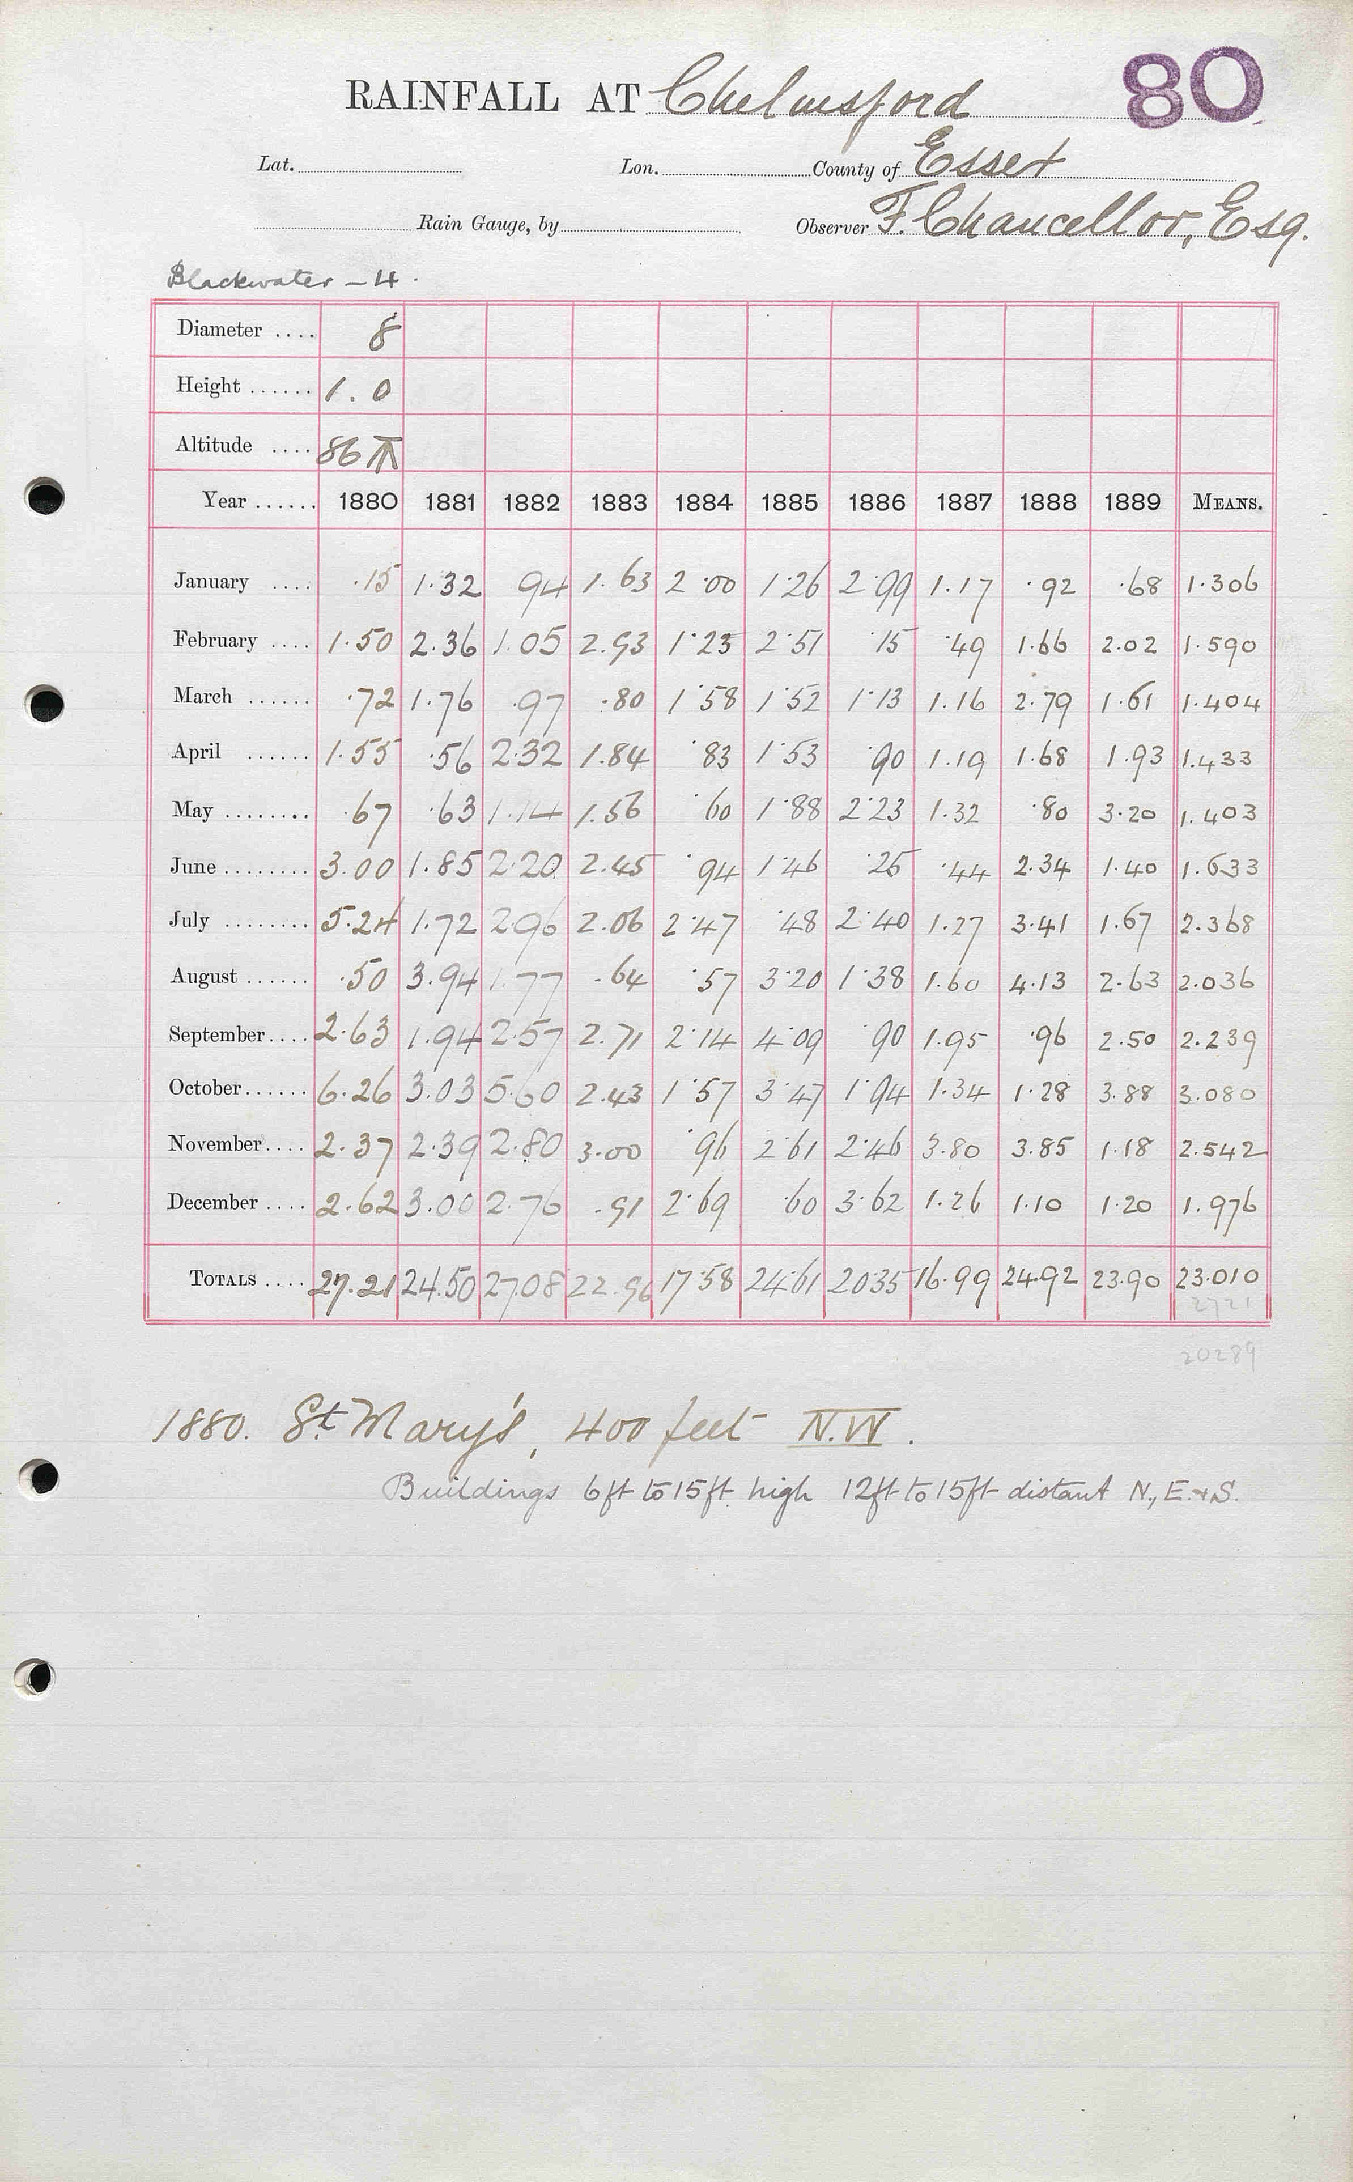 80
RAINFALL AT Chelmsford
Lat. Lon. County of Essex
Rain Gauge, by Observer F. Chancellor, Esq.
Blackwater - 4.
Diameter .... 8
Height ...... 1.0
Altitude .... 86
Year ...... 1880 1881 1882 1883 1884 1885 1886 1887 1888 1889 MEANS.
January .... .15 1.32 94 1.63 2.00 1.26 2.99 1.17 .92 .68 1.306
February .... 1.50 2.36 1.05 2.93 1.23 2.51 .15 .49 1.66 2.02 1.590
March ...... .72 1.76 .97 .80 1.58 1.52 1.13 1.16 2.79 1.61 1.404
April ...... 1.55 .56 2.32 1.84 .83 1.53 .90 1.19 1.68 1.93 1.433
May ........ .67 .63 1.14 1.56 .60 1.88 2.23 1.32 .80 3.20 1.403
June ........ 3.00 1.85 2.20 2.45 .94 1.46 .25 .44 2.34 1.40 1.633
July ........ 5.24 1.72 2.96 2.06 2.47 .48 2.40 1.27 3.41 1.67 2.368
August ...... .50 3.94 1.77 .64 .57 3.20 1.38 1.60 4.13 2.63 2.036
September.... 2.63 1.94 2.57 2.71 2.14 4.09 .90 1.95 .96 2.50 2.239
October...... 6.26 3.03 5.60 2.43 1.57 3.47 1.94 1.34 1.28 3.88 3.080
November.... 2.37 2.39 2.80 3.00 .96 2.61 2.46 3.80 3.85 1.18 2.542
December .... 2.62 3.00 2.76 .91 2.69 .60 3.62 1.26 1.10 1.20 1.976
TOTALS .... 27.21 24.50 27.08 22.96 17.58 24.61 20.35 16.99 24.92 23.90 23.010
2721
20289
1880. St. Mary's, 400 feet N.W.
Buildings 6ft to 15ft high 12ft to 15ft distant N., E. & S.